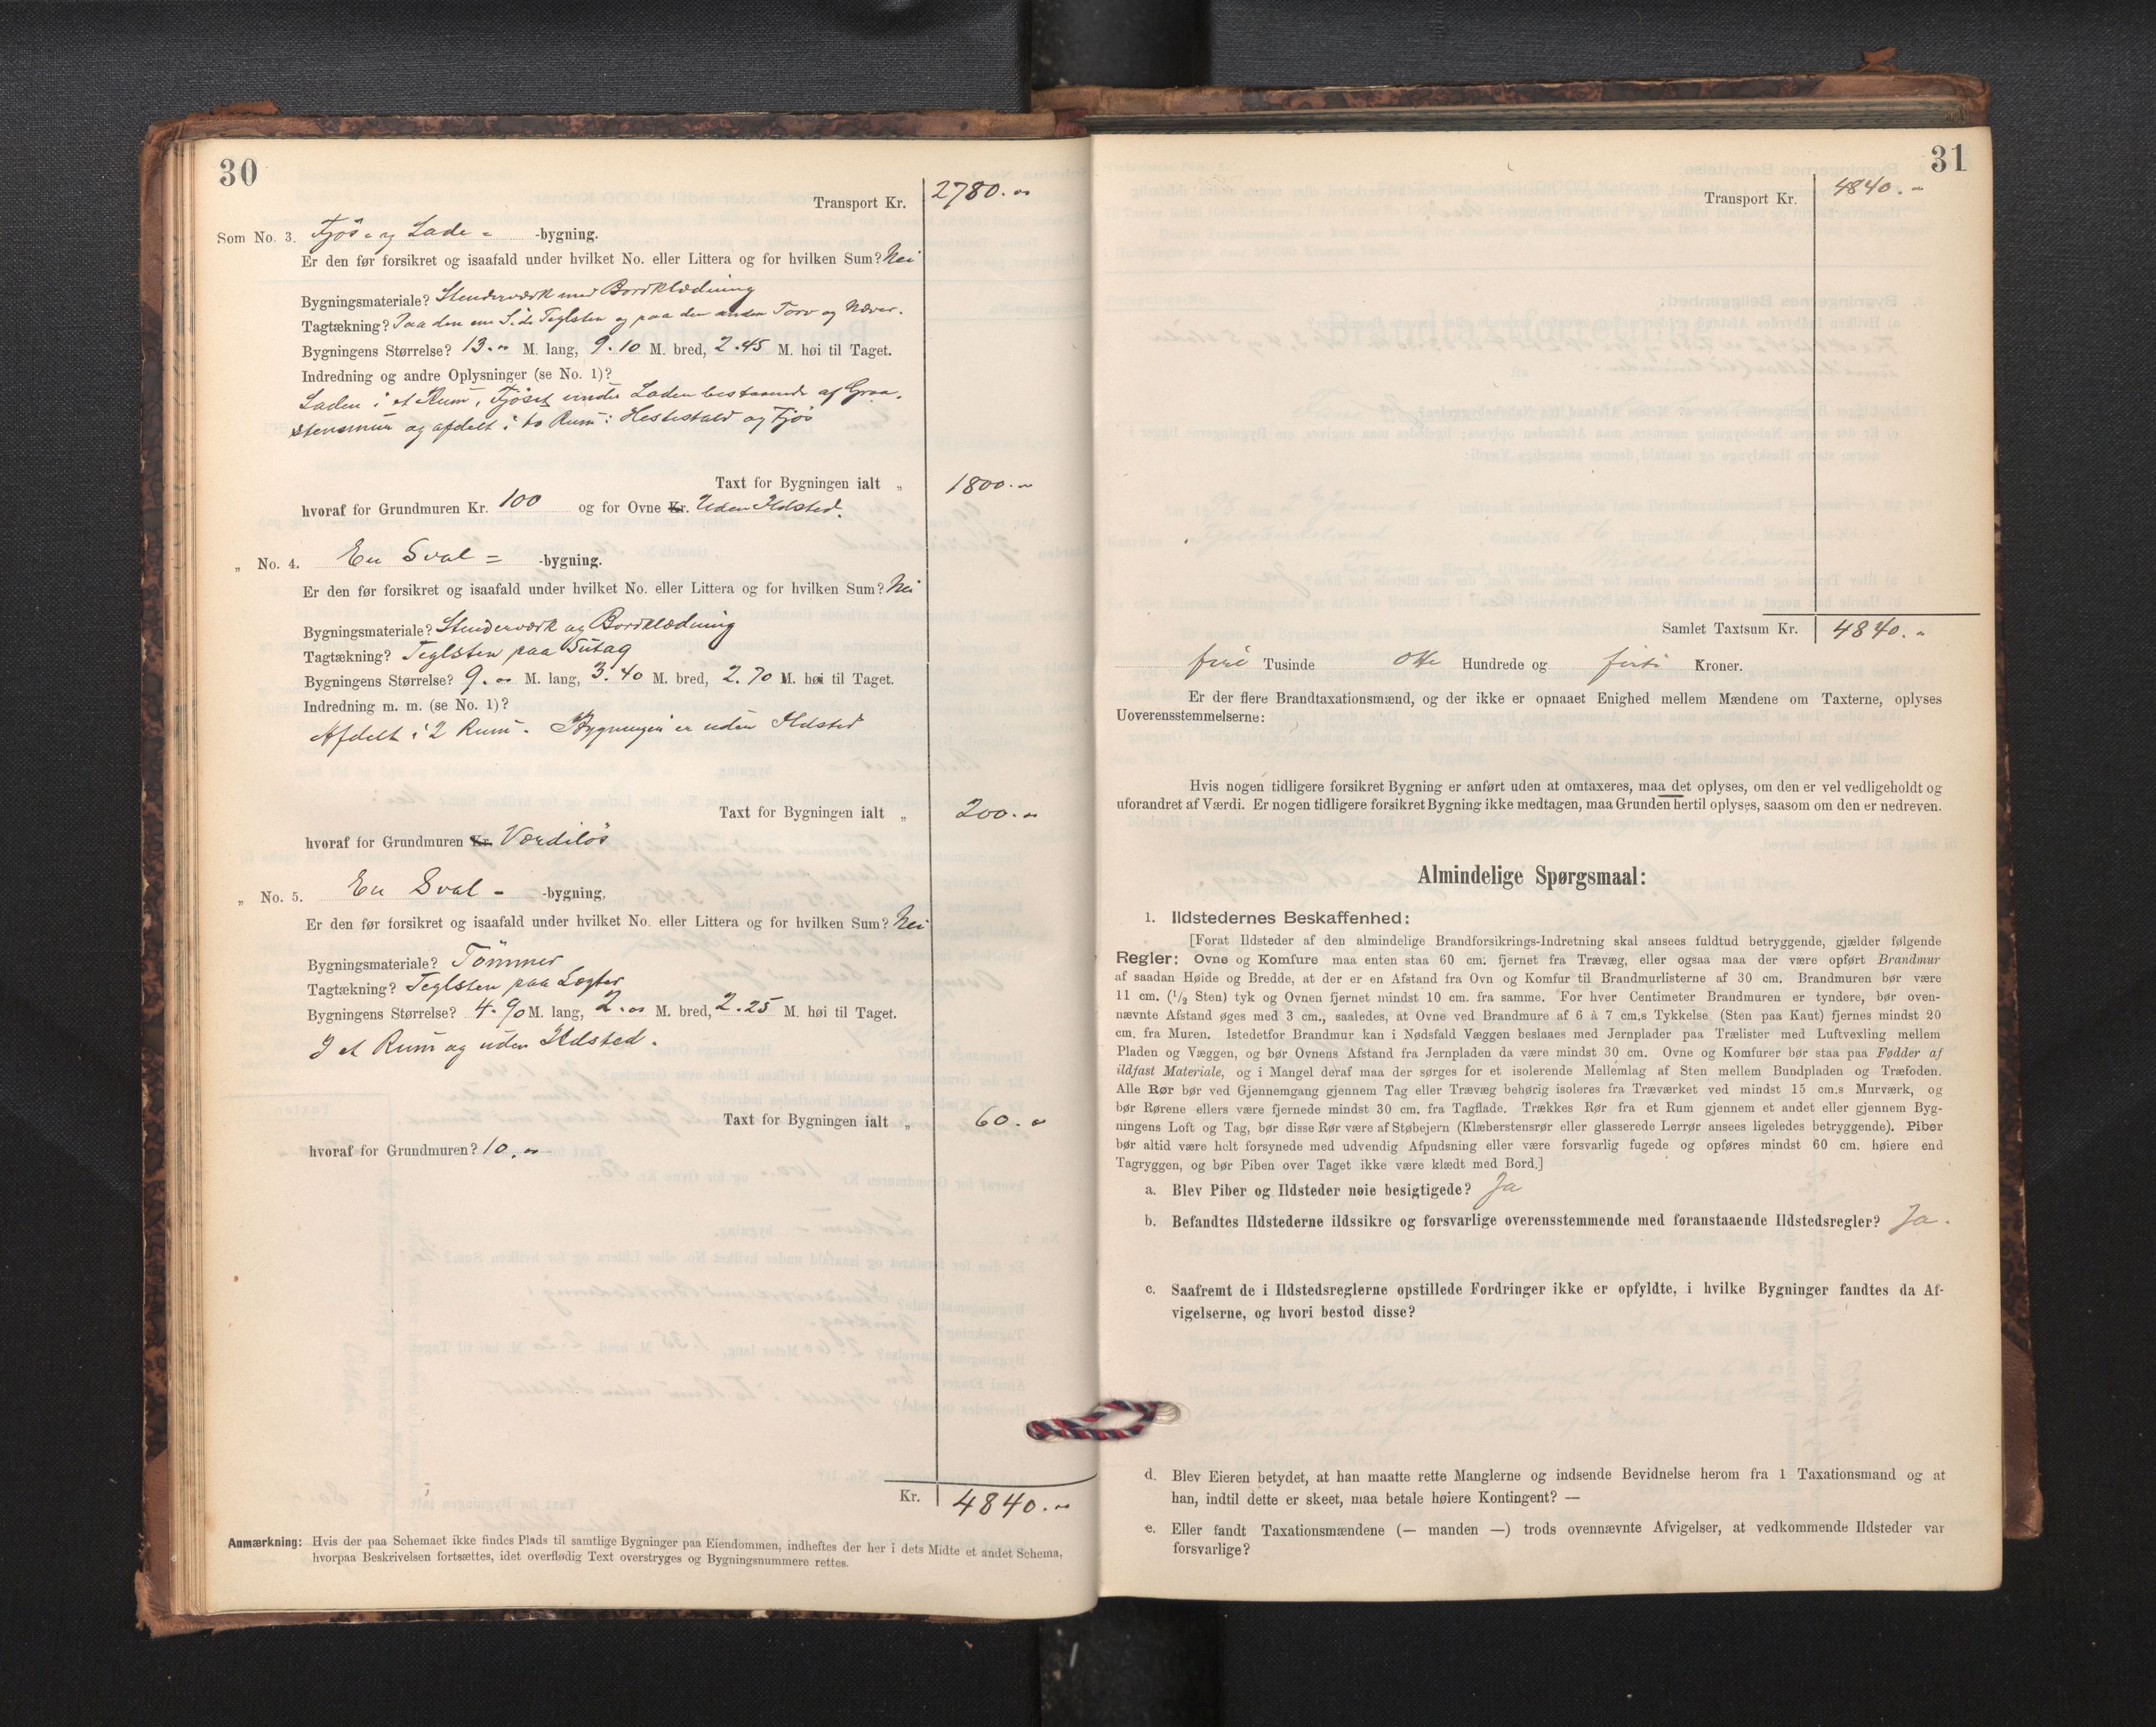 30
Transport Kr. 2780.-
Som No. 3. Fjös- og Lade- -bygning.
Er den før forsikret og isaafald under hvilket No. eller Littera og for hvilken Sum? Nei
Bygningsmateriale? Stenderværk med Bordklædning
Tagtækning? Paa den ene Side Teglsten og paa den anden Torv og Næver.
Bygningens Størrelse? 13.- M. lang, 9.10 M. bred, 2.45 M. høi til Taget.
Indredning og andre Oplysninger (se No. 1)?
Laden i et Rum, Fjöset under Laden bestaaende af Graa-
stensmur og afdelt i to Rum: Hestestald og Fjös
Taxt for Bygningen ialt „ 1800.-
hvoraf for Grundmuren Kr. 100 og for Ovne Kr. Uden Ildsted.
„ No. 4. En Sval- -bygning.
Er den før forsikret og isaafald under hvilket No. eller Littera og for hvilken Sum? Nei
Bygningsmateriale? Stenderværk og Bordklædning
Tagtækning? Teglsten paa Sutag
Bygningens Størrelse? 9.- M. lang, 3.40 M. bred, 2.70 M. høi til Taget.
Indredning m. m. (se No. 1)?
Afdelt i 2 Rum. Bygningen er uden Ildsted
Taxt for Bygningen ialt „ 200.-
hvoraf for Grundmuren Kr. Værdilös
„ No. 5. En Sval- -bygning,
Er den før forsikret og isaafald under hvilket No. eller Littera og for hvilken Sum? Nei
Bygningsmateriale? Tömmer
Tagtækning? Teglsten paa Lægter
Bygningens Størrelse? 4.90 M. lang, 2.- M. bred, 2.25 M. høi til Taget.
I et Rum og uden Ildsted.
Taxt for Bygningen ialt „ 60.-
hvoraf for Grundmuren? 10.-
Kr. 4840.-
Anmærkning: Hvis der paa Schemaet ikke findes Plads til samtlige Bygninger paa Eiendommen, indheftes der her i dets Midte et andet Schema,
hvorpaa Beskrivelsen fortsættes, idet overflødig Text overstryges og Bygningsnummere rettes.
31
Transport Kr. 4840.-
Samlet Taxtsum Kr. 4840.-
fire Tusinde otte Hundrede og firti Kroner.
Er der flere Brandtaxationsmænd, og der ikke er opnaaet Enighed mellem Mændene om Taxterne, oplyses
Uoverensstemmelserne:
Hvis nogen tidligere forsikret Bygning er anført uden at omtaxeres, maa det oplyses, om den er vel vedligeholdt og
uforandret af Værdi. Er nogen tidligere forsikret Bygning ikke medtagen, maa Grunden hertil oplyses, saasom om den er nedreven.
Almindelige Spørgsmaal:
1. Ildstedernes Beskaffenhed:
[Forat Ildsteder af den almindelige Brandforsikrings-Indretning skal ansees fuldtud betryggende, gjælder følgende
Regler: Ovne og Komfure maa enten staa 60 cm. fjernet fra Trævæg, eller ogsaa maa der være opført Brandmur
af saadan Høide og Bredde, at der er en Afstand fra Ovn og Komfur til Brandmurlisterne af 30 cm. Brandmuren bør være
11 cm. (1/2 Sten) tyk og Ovnen fjernet mindst 10 cm. fra samme. For hver Centimeter Brandmuren er tyndere, bør oven-
nævnte Afstand øges med 3 cm., saaledes, at Ovne ved Brandmure af 6 à 7 cm.s Tykkelse (Sten paa Kant) fjernes mindst 20
cm. fra Muren. Istedetfor Brandmur kan i Nødsfald Væggen beslaaes med Jernplader paa Trælister med Luftvexling mellem
Pladen og Væggen, og bør Ovnens Afstand fra Jernpladen da være mindst 30 cm. Ovne og Komfurer bør staa paa Fødder af
ildfast Materiale, og i Mangel deraf maa der sørges for et isolerende Mellemlag af Sten mellem Bundpladen og Træfoden.
Alle Rør bør ved Gjennemgang gjennem Tag eller Trævæg behørig isoleres fra Træværket ved mindst 15 cm.s Murværk, og
bør Rørene ellers være fjernede mindst 30 cm. fra Tagflade. Trækkes Rør fra et Rum gjennem et andet eller gjennem Byg-
ningens Loft og Tag, bør disse Rør være af Støbejern (Klæberstensrør eller glasserede Lerrør ansees ligeledes betryggende). Piber
bør altid være helt forsynede med udvendig Afpudsning eller være forsvarlig fugede og opføres mindst 60 cm. høiere end
Tagryggen, og bør Piben over Taget ikke være klædt med Bord.]
a. Blev Piber og Ildsteder nøie besigtigede? Ja
b. Befandtes Ildstederne ildssikre og forsvarlige overensstemmende med foranstaaende Ildstedsregler? Ja.
c. Saafremt de i Ildstedsreglerne opstillede Fordringer ikke er opfyldte, i hvilke Bygninger fandtes da Af-
vigelserne, og hvori bestod disse?
d. Blev Eieren betydet, at han maatte rette Manglerne og indsende Bevidnelse herom fra 1 Taxationsmand og at
han, indtil dette er skeet, maa betale høiere Kontingent? —
e. Eller fandt Taxationsmændene (— manden —) trods ovennævnte Afvigelser, at vedkommende Ildsteder var
forsvarlige?